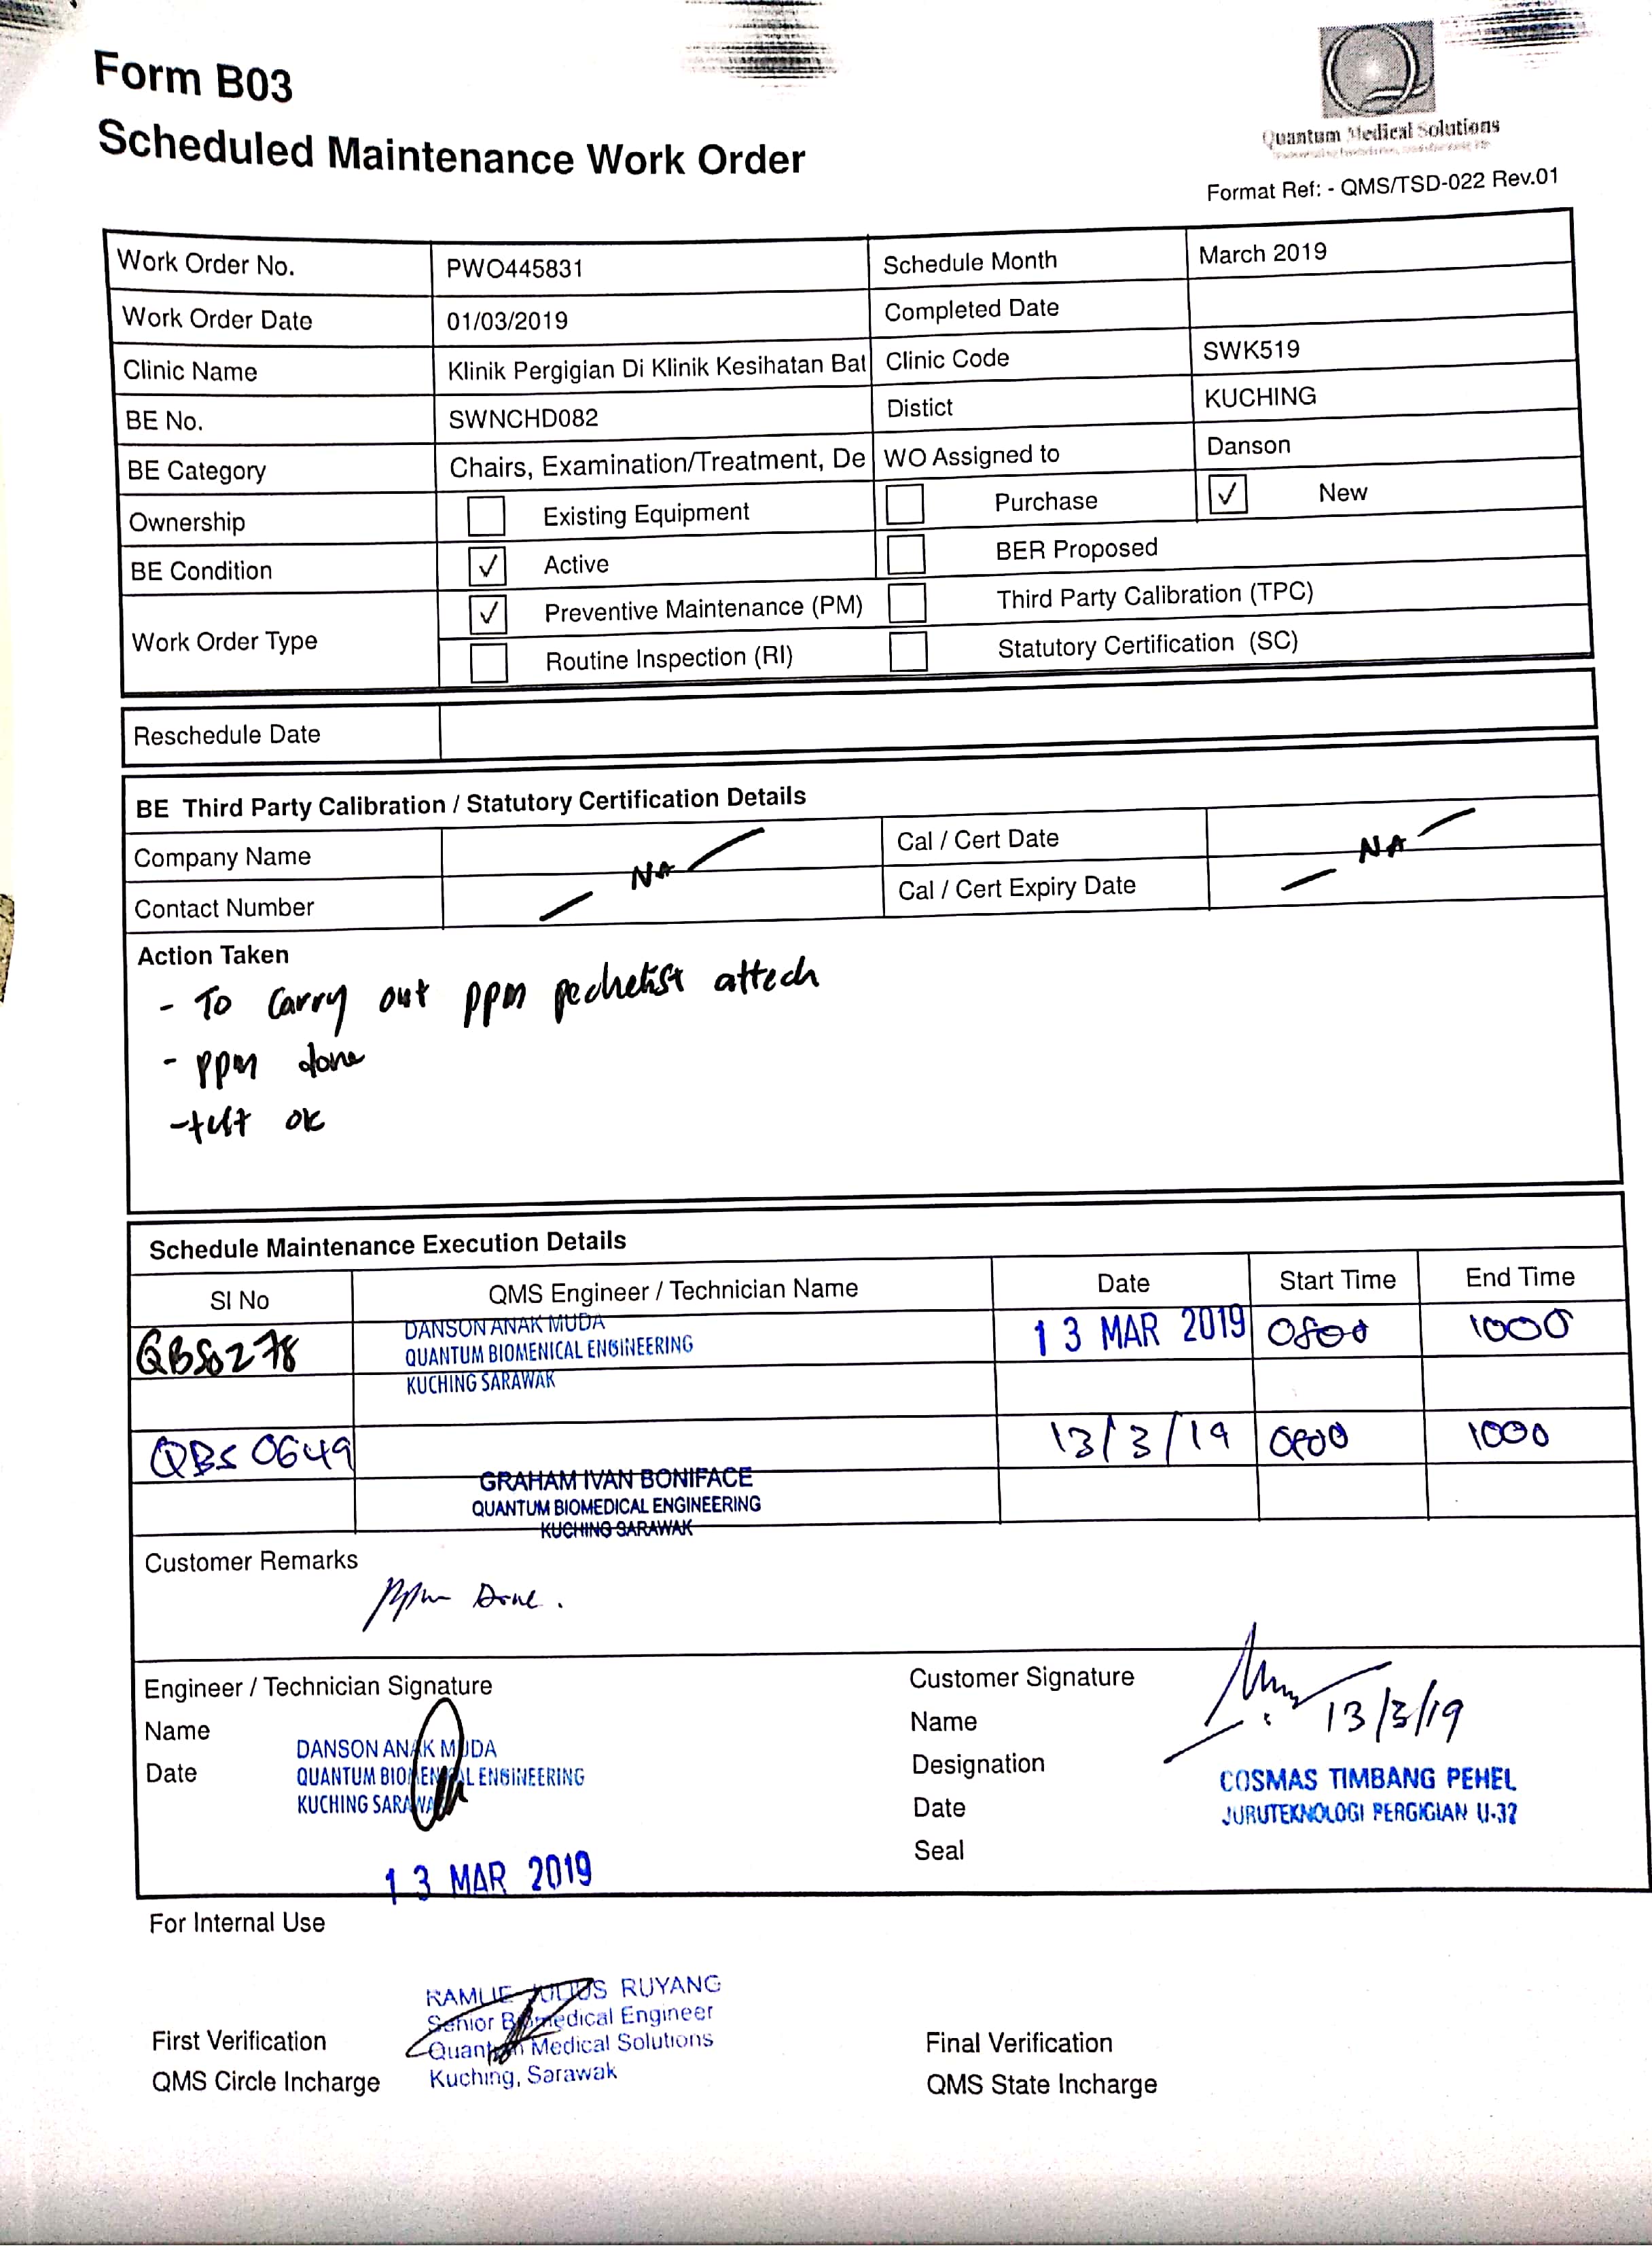 Form B03
Scheduled Maintenance Work Order
Quantum Medical Solutions
Format Ref: - QMS/TSD-022 Rev.01
Work Order No. PWO445831 Schedule Month March 2019
Work Order Date 01/03/2019 Completed Date
Clinic Name Klinik Pergigian Di Klinik Kesihatan Bat Clinic Code SWK519
BE No. SWNCHD082 Distict KUCHING
BE Category Chairs, Examination/Treatment, De WO Assigned to Danson
Ownership Existing Equipment Purchase ✓ New
BE Condition ✓ Active BER Proposed
Work Order Type ✓ Preventive Maintenance (PM) Third Party Calibration (TPC)
Routine Inspection (RI) Statutory Certification (SC)
Reschedule Date
BE Third Party Calibration / Statutory Certification Details
Company Name NA Cal / Cert Date NA
Contact Number Cal / Cert Expiry Date
Action Taken
- To carry out ppm attech
- ppm done
- test ok
Schedule Maintenance Execution Details
SI No QMS Engineer / Technician Name Date Start Time End Time
QBS0278 DANSON ANAK MUDA 13 MAR 2019 0800 1000
QUANTUM BIOMENICAL ENGINEERING
KUCHING SARAWAK
QBS 0649 13/3/19 0800 1000
GRAHAM IVAN BONIFACE
QUANTUM BIOMEDICAL ENGINEERING
KUCHING SARAWAK
Customer Remarks
ppm Done.
Engineer / Technician Signature
Name
Date
DANSON ANAK MUDA
QUANTUM BIOMENICAL ENGINEERING
KUCHING SARAWAK
13 MAR 2019
Customer Signature
Name 13/3/19
Designation
Date
Seal
COSMAS TIMBANG PEHEL
JURUTEKNOLOGI PERGIGIAN U-32
For Internal Use
RAMLIE JULIUS RUYANG
Senior Biomedical Engineer
Quantum Medical Solutions
Kuching, Sarawak
First Verification
QMS Circle Incharge
Final Verification
QMS State Incharge